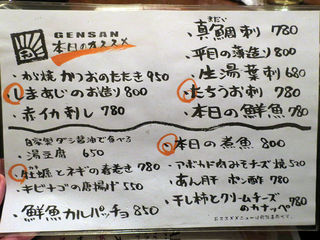 GENSAN
本日のオススメ
・わら焼かつおのたたき 950
・しまあじのお造り 800
・赤イカ刺し 780
・真鯛刺 780
・平目の薄造り 800
・生湯葉刺 680
・たちうお刺 780
・本日の鮮魚 780
自家製ダシ醤油で食べる
・湯豆腐 650
・牡蠣とネギの春巻き 780
・キビナゴの唐揚げ 550
・鮮魚カルパッチョ 850
・本日の煮魚 800
・アボカド肉みそチーズ焼 520
・あん肝 ポン酢 780
・干し柿とクリームチーズ
のカナッペ 780